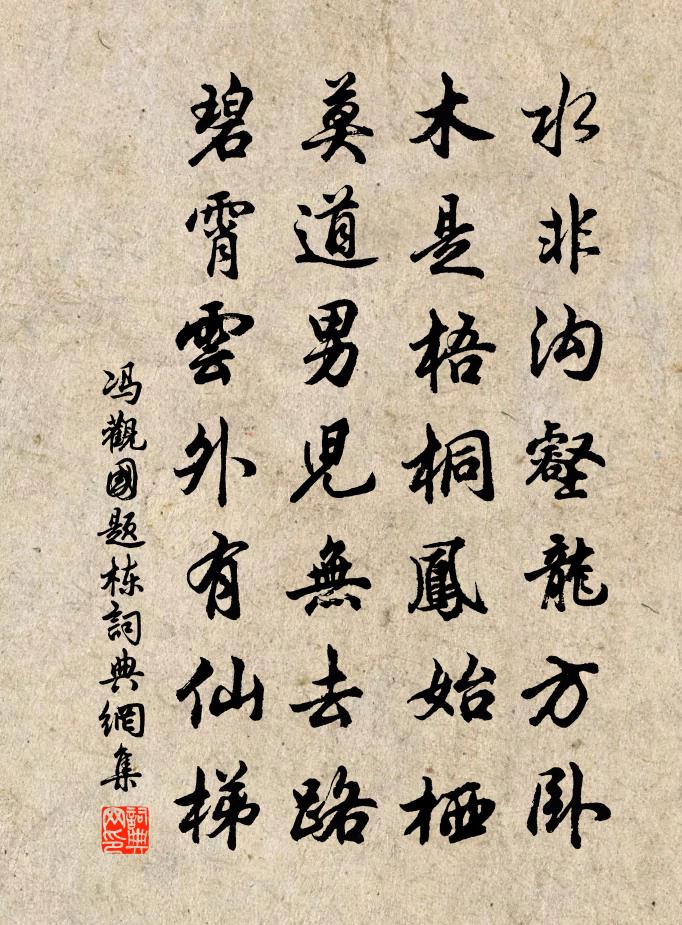 水非沟壑龍方卧
木是梧桐鳳始栖
莫道男児無去路
碧霄雲外有仙梯
冯觀國题栋詞典網集
詞典網印